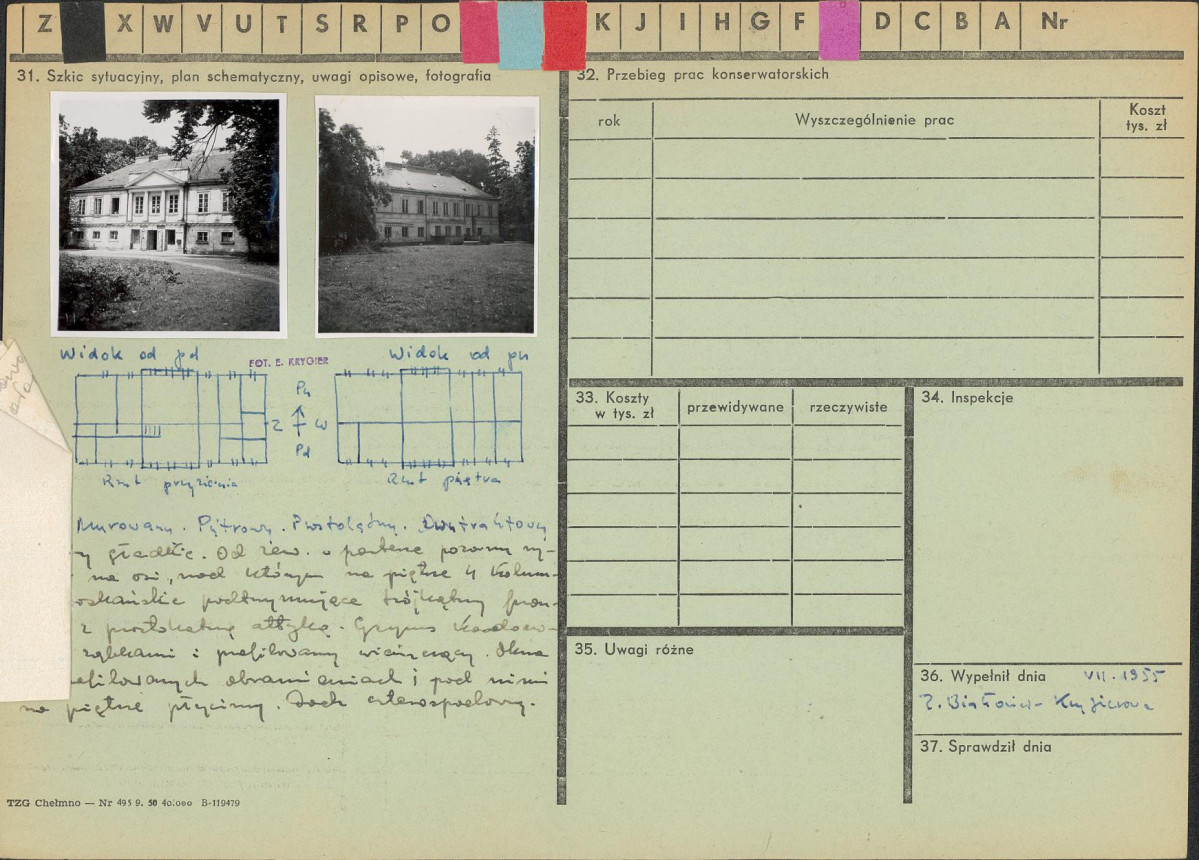 Z X W V U T S R P O K J I H G F D C B A Nr
31. Szkic sytuacyjny, plan schematyczny, uwagi opisowe, fotografia
Widok od pd
FOT. E. KRYGIER
Widok od pn
Pn
Z W
Pd
Rzut przyziemia
Rzut piętra
Murowany. Piętrowy. Prostokątny. Dwutraktowy
gładkie. Od zew. w parterze pozorny ry-
na osi, nad którym na piętrze 4 kolum-
oskańskie podtrzymujące trójkątny fron-
z prostokątną attyką. Gzyms kordonow-
ząbkami i profilowany wieńczący. Okna
ofilowanych obramieniach i pod nimi
na piętrze płyciny. Dach czterospadowy.
TZG Chełmno — Nr 495 9. 50 40.000 B-119479
32. Przebieg prac konserwatorskich
rok
Wyszczególnienie prac
Koszt
tys. zł
33. Koszty
w tys. zł
przewidywane
rzeczywiste
34. Inspekcje
35. Uwagi różne
36. Wypełnił dnia VII. 1955
37. Sprawdził dnia